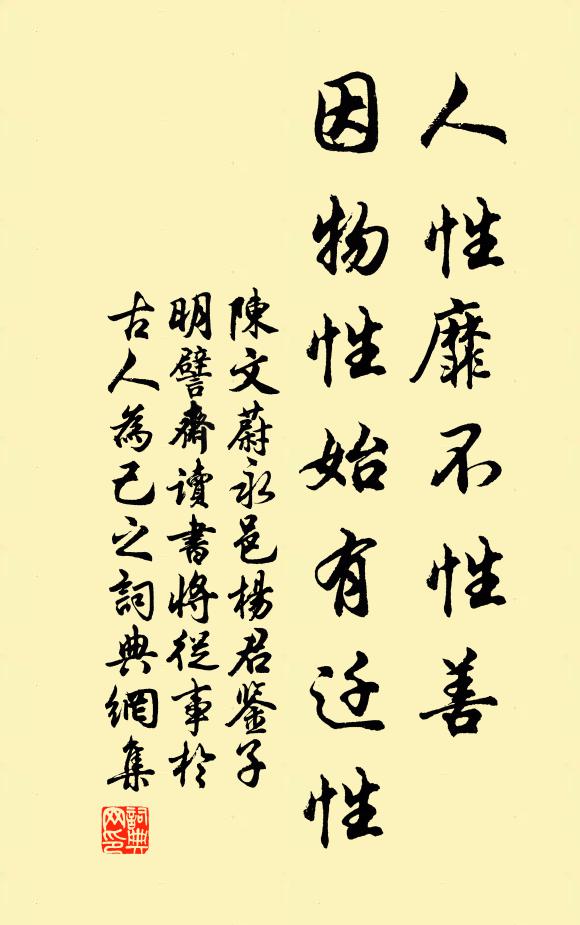 人性靡不性善
因物性始有迁性
陳文蔚永邑楊君鉴子
明譬齋讀書将從事於
古人為己之詞典網集
詞典网印